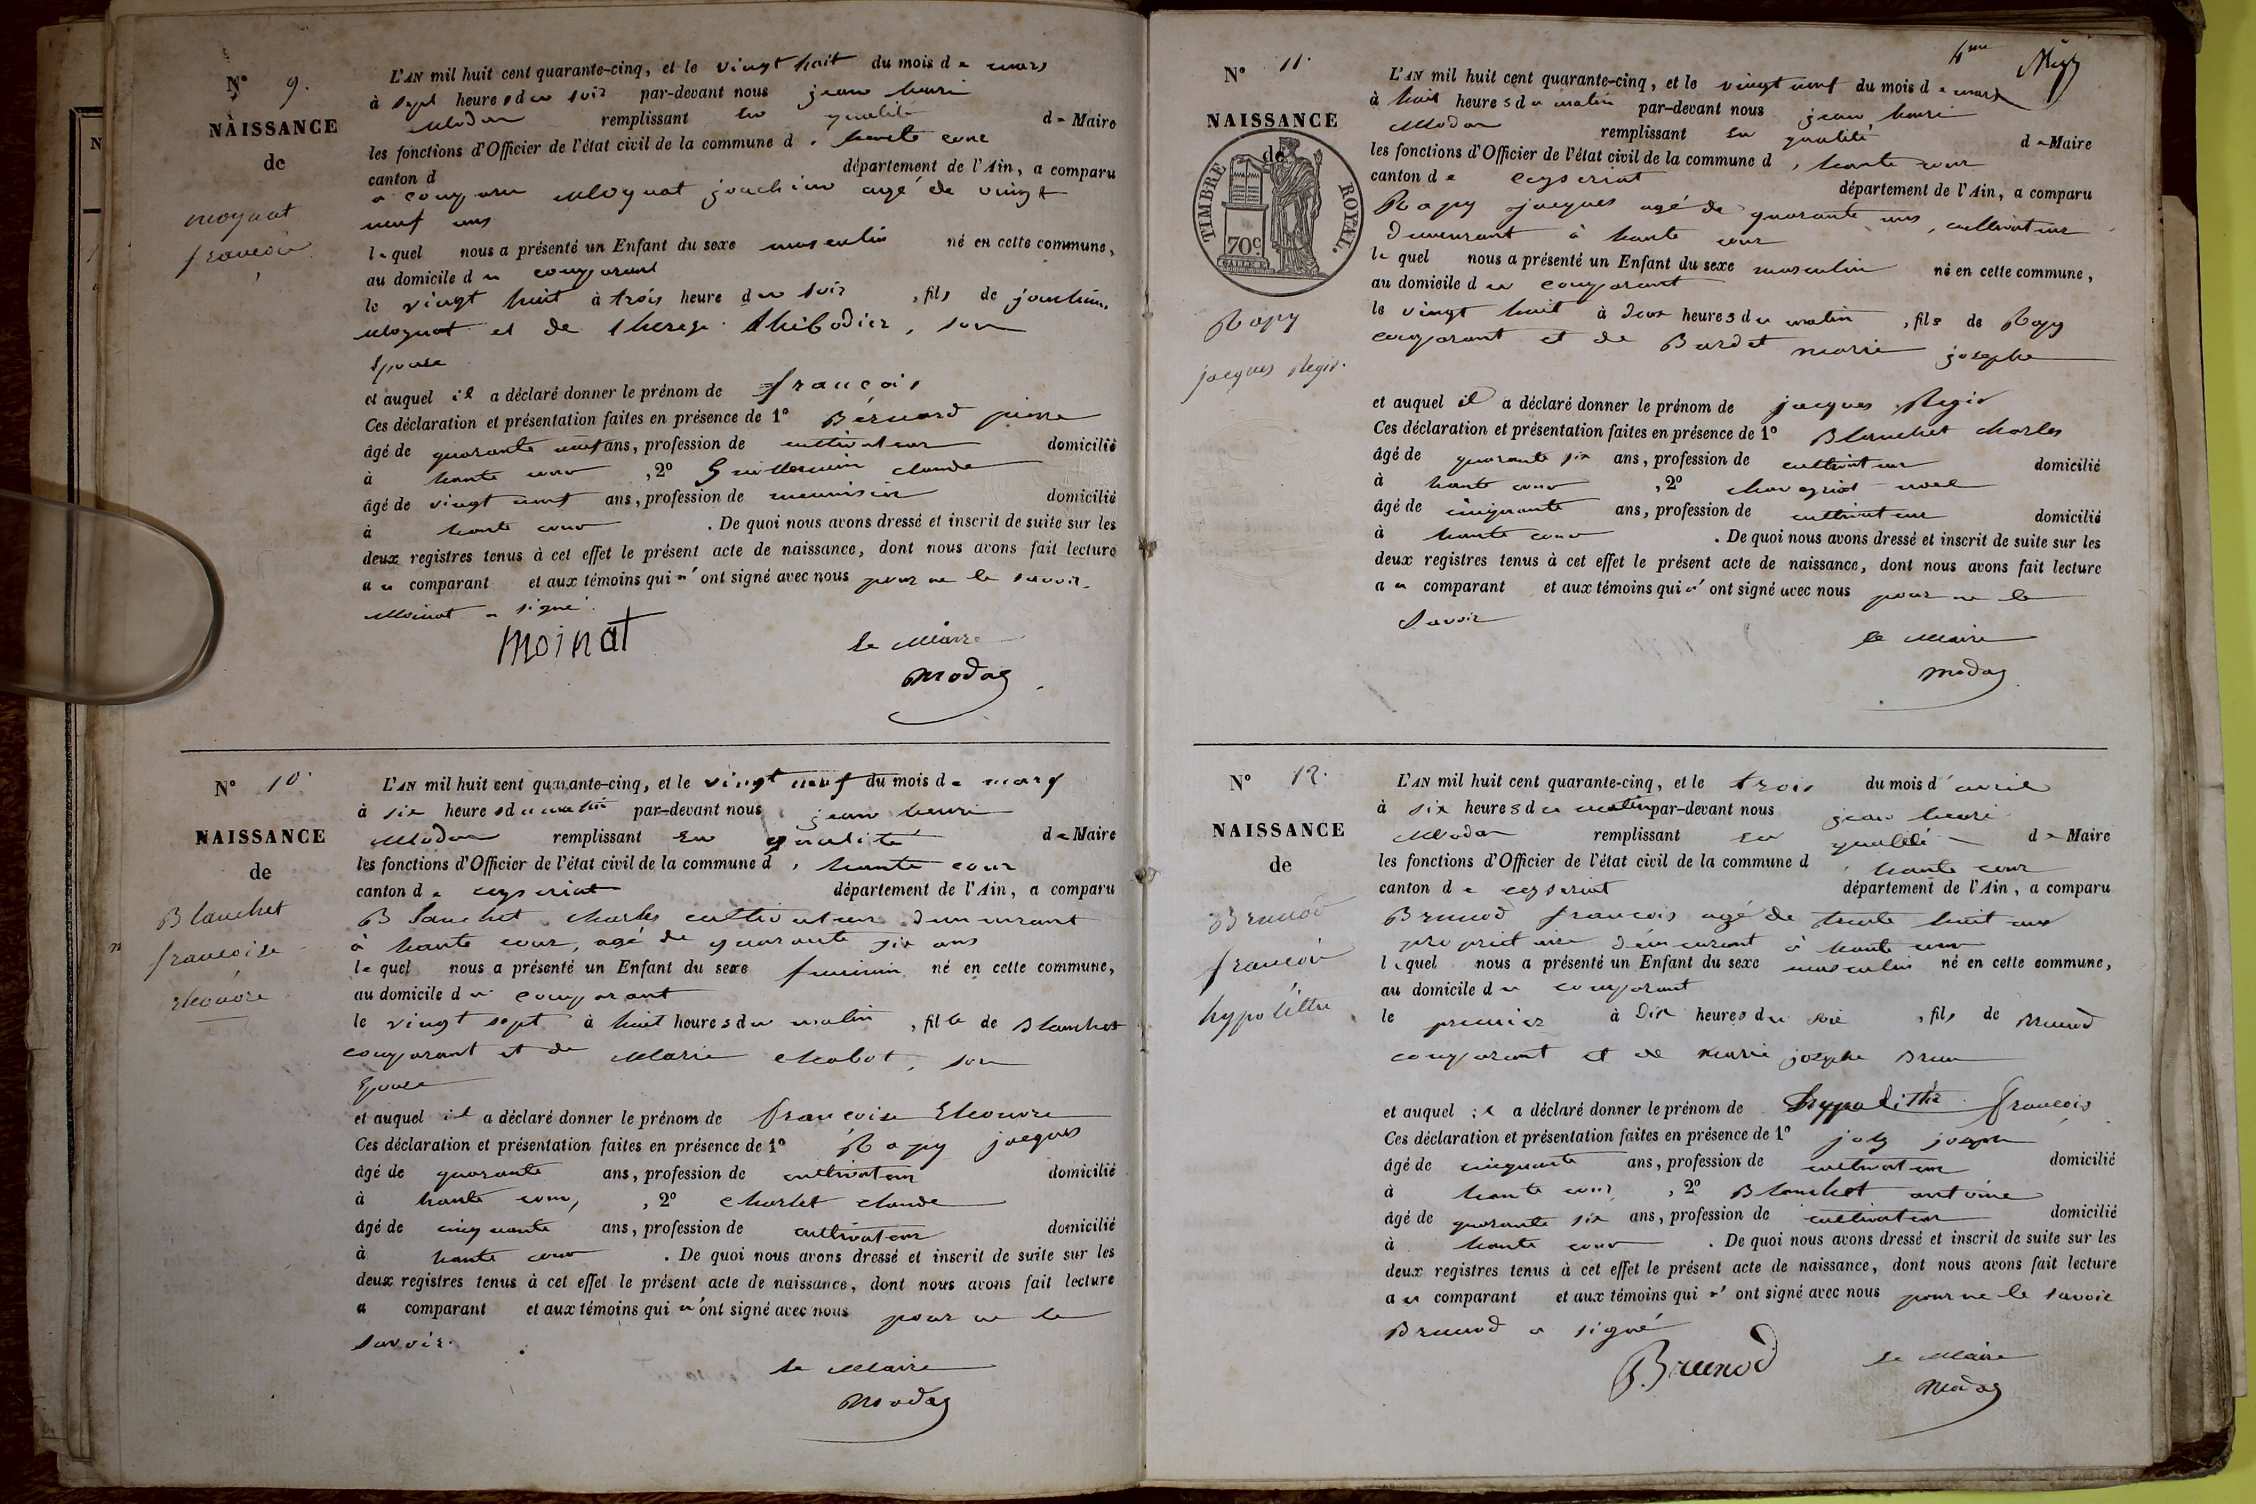 N° 9.
NAISSANCE
de
moynat
francois
L'AN mil huit cent quarante-cinq, et le vingt huit du mois de mars
à sept heures du soir par-devant nous jean henri
Modas remplissant en qualité de Maire
les fonctions d'Officier de l'état civil de la commune d' haute cour
canton d département de l'Ain, a comparu
a comparu Moynat joachim agé de vingt
neuf ans
lequel nous a présenté un Enfant du sexe masculin né en cette commune,
au domicile du comparant
le vingt huit à trois heure du soir, fils de joachim
Moynat et de therese thibodier, son
Epouse
et auquel il a déclaré donner le prénom de françois
Ces déclaration et présentation faites en présence de 1° Bernard pierre
âgé de quarante neuf ans, profession de cultivateur domicilié
à haute cour, 2° Guillermin claude
âgé de vingt neuf ans, profession de menuisier domicilié
à haute cour. De quoi nous avons dressé et inscrit de suite sur les
deux registres tenus à cet effet le présent acte de naissance, dont nous avons fait lecture
au comparant et aux témoins qui n'ont signé avec nous pour ne le savoir.
Moinat a signé.
moinat
le Maire
Modas
N° 10.
NAISSANCE
de
Blanchet
francoise
Eleonore
L'AN mil huit cent quarante-cinq, et le vingt neuf du mois de mars
à six heures du matin par-devant nous jean henri
Modas remplissant en qualité de Maire
les fonctions d'Officier de l'état civil de la commune d' haute cour
canton de ceyseriat département de l'Ain, a comparu
Blanchet charles cultivateur demeurant
à haute cour, agé de quarante six ans
lequel nous a présenté un Enfant du sexe feminin né en cette commune,
au domicile du comparant
le vingt sept à huit heures du matin, fille de Blanchet
comparant et de Marie chabot, son
Epouse
et auquel il a déclaré donner le prénom de francoise Eleonore
Ces déclaration et présentation faites en présence de 1° Rapy jacques
âgé de quarante ans, profession de cultivateur domicilié
à haute cour, 2° charlet claude
âgé de cinquante ans, profession de cultivateur domicilié
à haute cour. De quoi nous avons dressé et inscrit de suite sur les
deux registres tenus à cet effet le présent acte de naissance, dont nous avons fait lecture
a comparant et aux témoins qui n'ont signé avec nous pour ne le
savoir.
le Maire
Modas
4me
N° 11.
NAISSANCE
de
TIMBRE ROYAL.
70c
Rapy
jacques Regis.
L'AN mil huit cent quarante-cinq, et le vingt neuf du mois de mars
à huit heures du matin par-devant nous jean henri
Modas remplissant en qualité de Maire
les fonctions d'Officier de l'état civil de la commune d' haute cour
canton de ceyseriat département de l'Ain, a comparu
Rapy jacques agé de quarante ans, cultivateur
demeurant à haute cour
lequel nous a présenté un Enfant du sexe masculin né en cette commune,
au domicile du comparant
le vingt huit à deux heures du matin, fils de Rapy
comparant et de Bardet marie josephe
et auquel il a déclaré donner le prénom de jacques Regis
Ces déclaration et présentation faites en présence de 1° Blanchet charles
âgé de quarante six ans, profession de cultivateur domicilié
à haute cour, 2°
âgé de cinquante ans, profession de cultivateur domicilié
à haute cour. De quoi nous avons dressé et inscrit de suite sur les
deux registres tenus à cet effet le présent acte de naissance, dont nous avons fait lecture
au comparant et aux témoins qui n'ont signé avec nous pour ne le
savoir
le Maire
modas
N° 12.
NAISSANCE
de
Brunod
francois
hypolitte
L'AN mil huit cent quarante-cinq, et le trois du mois d'avril
à six heures du matin par-devant nous jean henri
Modas remplissant en qualité de Maire
les fonctions d'Officier de l'état civil de la commune d' haute cour
canton de ceyseriat département de l'Ain, a comparu
Brunod francois agé de trente huit ans
proprietaire demeurant à haute cour
lequel nous a présenté un Enfant du sexe masculin né en cette commune,
au domicile du comparant
le premier à dix heures du soir, fils de Brunod
comparant et de marie josephe Brun
et auquel il a déclaré donner le prénom de hyppolithe francois
Ces déclaration et présentation faites en présence de 1° joly joseph
âgé de cinquante ans, profession de cultivateur domicilié
à haute cour, 2° Blanchet antoine
âgé de quarante six ans, profession de cultivateur domicilié
à haute cour. De quoi nous avons dressé et inscrit de suite sur les
deux registres tenus à cet effet le présent acte de naissance, dont nous avons fait lecture
au comparant et aux témoins qui n'ont signé avec nous pour ne le savoir
Brunod a signé
Brunod
le Maire
Modas